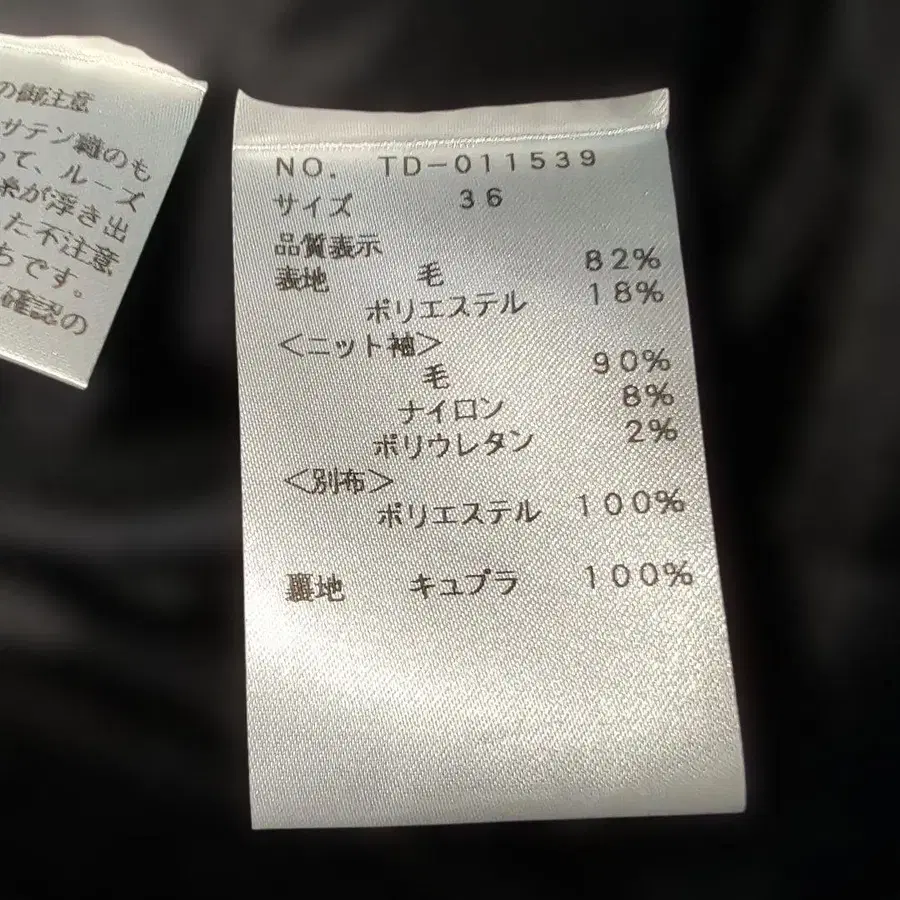 の御注意
サテン織のも
って、ルーズ
糸が浮き出
た不注意
ちです。
確認の
NO. TD-011539
サイズ 36
品質表示
表地 毛 82%
ポリエステル 18%
<ニット袖>
毛 90%
ナイロン 8%
ポリウレタン 2%
<別布>
ポリエステル 100%
裏地 キュプラ 100%